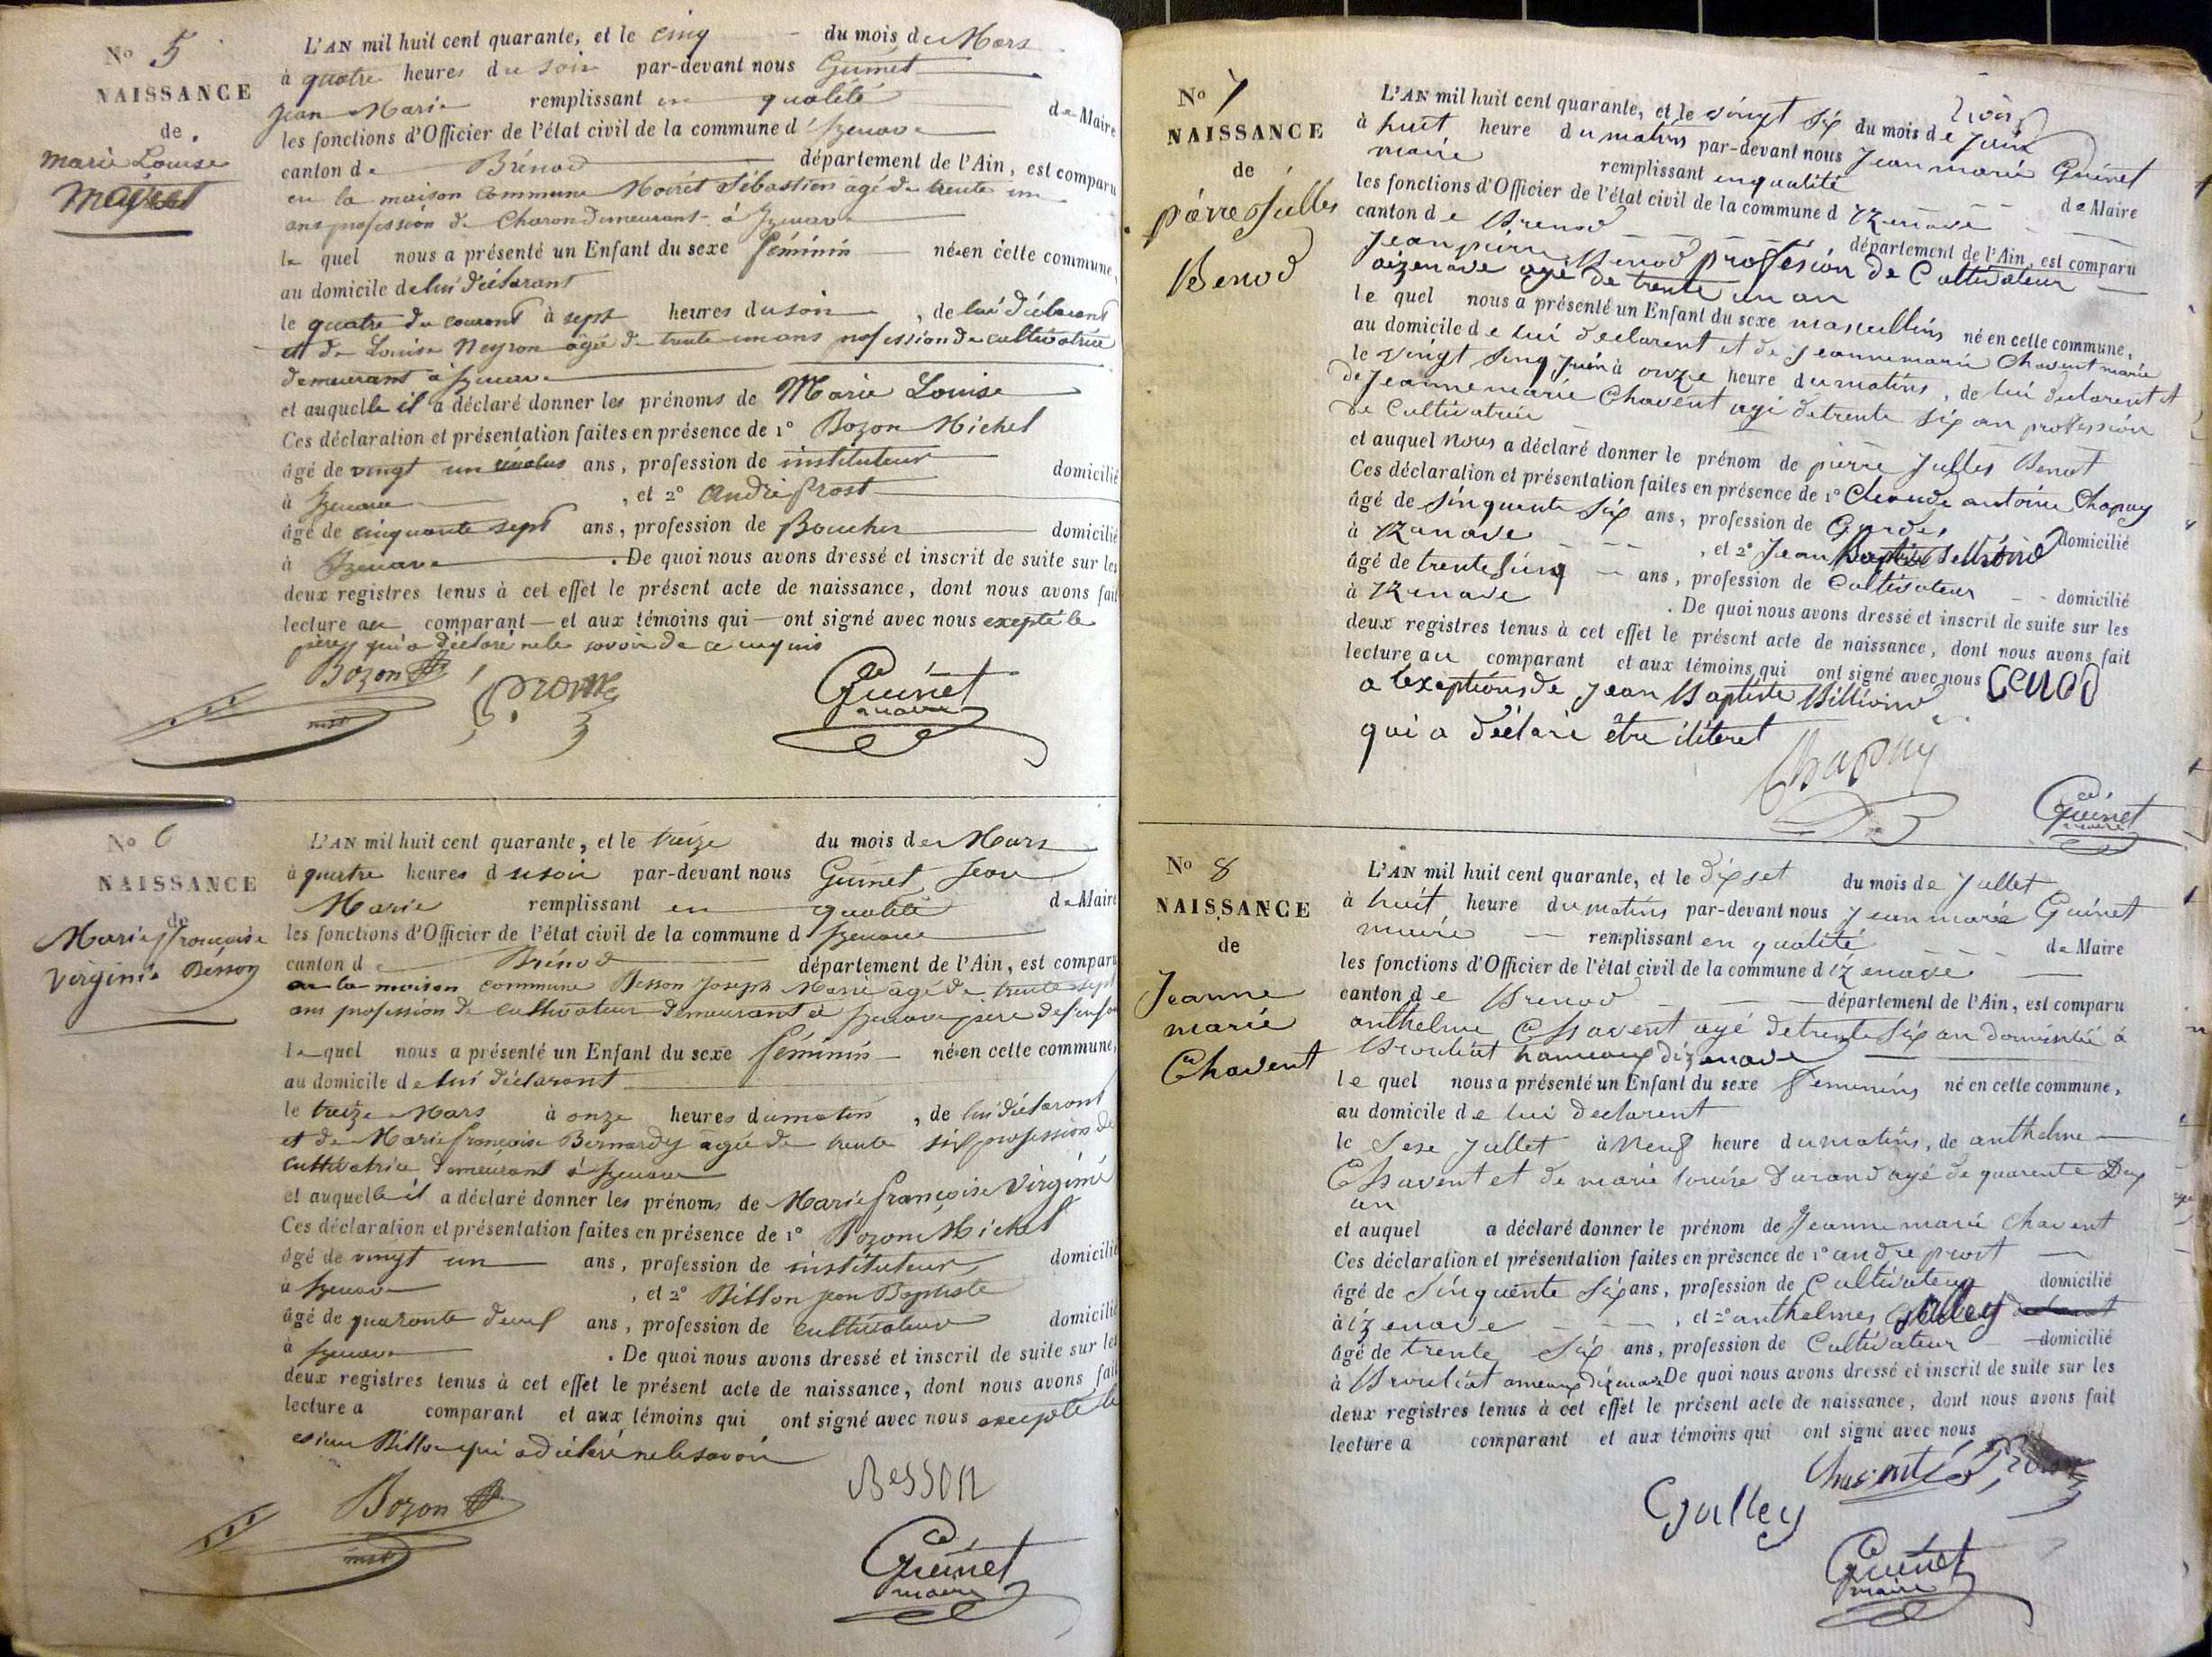 No 5
NAISSANCE
de
Marie Louise
Mairet
L'AN mil huit cent quarante, et le cinq du mois de Mars
à quatre heures du soir par-devant nous Guinet
Jean Marie remplissant en qualité de Maire
les fonctions d'Officier de l'état civil de la commune d'Izenave
canton de Brénod département de l'Ain, est comparu
en la maison commune Moirét Sébastien agé de trente un
ans profession de Charon demeurant à Izenave
le quel nous a présenté un Enfant du sexe féminin né en cette commune,
au domicile de lui déclarant
le quatre du courant à sept heures du soir, de lui déclarant
et de Louise Neyron âgée de trente un ans profession de cultivatrice
demeurant à Izenave
et auquelle il a déclaré donner les prénoms de Marie Louise
Ces déclaration et présentation faites en présence de 1° Bozon Michel
âgé de vingt un ans, profession de instituteur domicilié
à Izenave, et 2° André Prost
âgé de cinquante sept ans, profession de Boucher domicilié
à Izenave. De quoi nous avons dressé et inscrit de suite sur les
deux registres tenus à cet effet le présent acte de naissance, dont nous avons fait
lecture au comparant et aux témoins qui ont signé avec nous excepté le
père qui a déclaré ne le savoir de ce enquis
Bozon
inst
Guinet
maire
No 6
NAISSANCE
de
Marie françoise
virginie Besson
L'AN mil huit cent quarante, et le treize du mois de Mars
à quatre heures du soir par-devant nous Guinet Jean
Marie remplissant en qualité de Maire
les fonctions d'Officier de l'état civil de la commune d Izenave
canton d Brénod département de l'Ain, est comparu
en la maison commune Besson Joseph Marie âgé de trente sept
ans profession de cultivateur demeurant à Izenave père de l'enfant
le quel nous a présenté un Enfant du sexe féminin né en cette commune,
au domicile de lui déclarant
le treize Mars à onze heures du matin, de lui déclarant
et de Marie françoise Bernardy agée de trente six profession de
cultivatrice demeurant à Izenave
et auquelle il a déclaré donner les prénoms de Marie françoise Virginie
Ces déclaration et présentation faites en présence de 1° Bozon Michel
âgé de vingt un ans, profession de instituteur domicilié
à Izenave, et 2° Billon jean Baptiste
âgé de quaronte deux ans, profession de cultivateur domicilié
à Izenave. De quoi nous avons dressé et inscrit de suite sur les
deux registres tenus à cet effet le présent acte de naissance, dont nous avons fait
lecture a comparant et aux témoins qui ont signé avec nous excepté le
Billon qui a déclaré ne le savoir
Besson
Bozon
inst
Guinet
maire
No 7
NAISSANCE
de
pierre Julles
Benod
L'AN mil huit cent quarante, et le vingt six du mois de Juin
à huit heure du matins par-devant nous Jean marie Guinet
maire remplissant en qualité de Maire
les fonctions d'Officier de l'état civil de la commune d izenave
canton de Brenod département de l'Ain, est comparu
Jean pierre Benod profession de Cultivateur
aizenave agé de trente un an
le quel nous a présenté un Enfant du sexe masculins né en cette commune,
au domicile de lui declarent et de Jeanne marie Chavent marie
le vingt sinq Juin à onze heure du matins, de lui declarent et
de Jeanne marie Chavent agé de trente six an profession
de Cultivatrice
et auquel nous a déclaré donner le prénom de pierre Julles Benot
Ces déclaration et présentation faites en présence de 1° Cloaude antoine Chapuy
âgé de sinquente six ans, profession de Garde domicilié
à izenave, et 2° Jean Baptiste
âgé de trente sinq ans, profession de Cultivateur domicilié
à izenave. De quoi nous avons dressé et inscrit de suite sur les
deux registres tenus à cet effet le présent acte de naissance, dont nous avons fait
lecture au comparant et aux témoins qui ont signé avec nous Benod
a l'exceptions de Jean Baptiste
qui a déclaré être iliteret
Chapuy
Guinet
maire
No 8
NAISSANCE
de
Jeanne
marie
Chavent
L'AN mil huit cent quarante, et le dix set du mois de Jullet
à huit heure du matins par-devant nous Jean marie Guinet
maire remplissant en qualité de Maire
les fonctions d'Officier de l'état civil de la commune d izenave
canton de Brenod département de l'Ain, est comparu
anthelme Chavent agé de trente six an domicilié à
hameaux dizenave
le quel nous a présenté un Enfant du sexe feminins né en cette commune,
au domicile de lui declarent
le sese Jullet à neuf heure du matins, de anthelme
Chavent et de marie louise Durand agé de quarente deux
an
et auquel a déclaré donner le prénom de Jeanne marie Chavent
Ces déclaration et présentation faites en présence de 1° andre prost
âgé de sinquente six ans, profession de Cultivateur domicilié
à izenave, et 2° anthelmes Galley
âgé de trente six ans, profession de Cultivateur domicilié
à dizenave De quoi nous avons dressé et inscrit de suite sur les
deux registres tenus à cet effet le présent acte de naissance, dont nous avons fait
lecture a comparant et aux témoins qui ont signé avec nous
Chavent
Galley
Guinet
maire